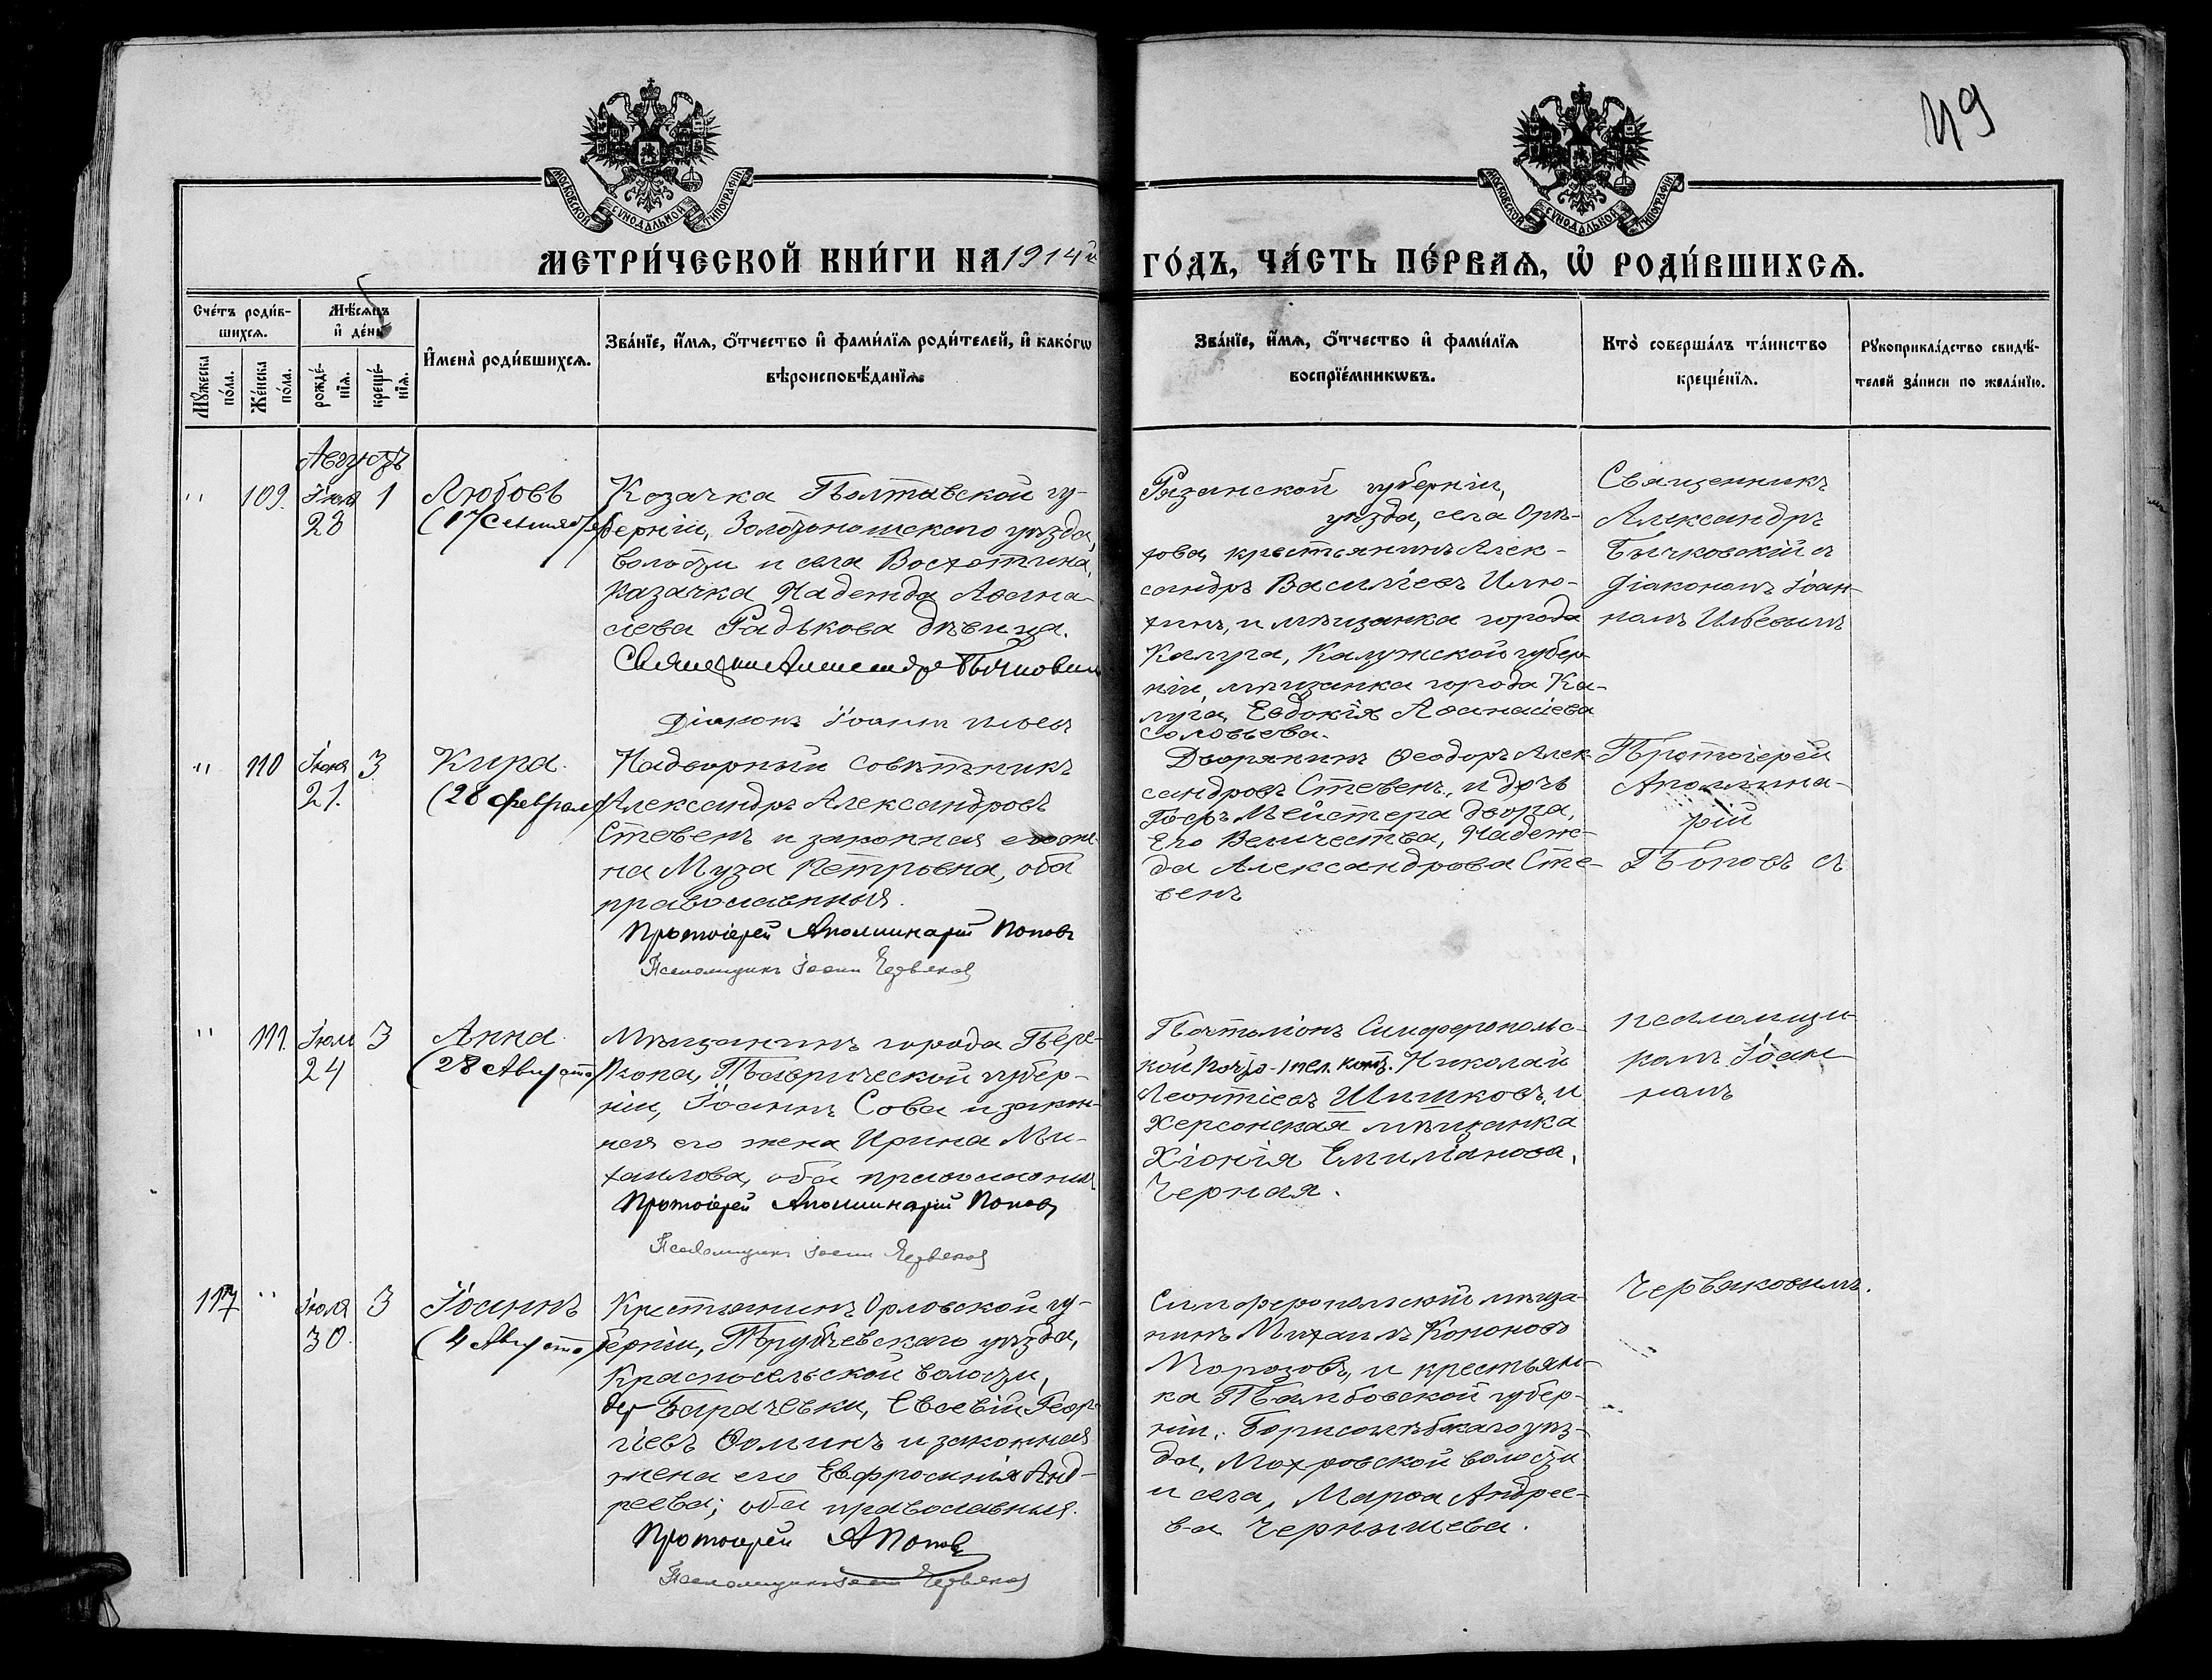 49
МОСКОВСКОЙ СУНОДАЛЬНОЙ ТИПОГРАФІИ
МОСКОВСКОЙ СУНОДАЛЬНОЙ ТИПОГРАФІИ
МЕТРИ́ЧЕСКОЙ КНИ́ГИ НА 1914й
ГО́ДЪ, ЧА́СТЬ ПЕ́РВАѦ, Ѡ҆ РОДИ́ВШИХСѦ.
Сче́тъ роди́в-
шихсѧ.
Мꙋ́жеска по́ла.
Же́нска по́ла.
Мѣ́сѧцъ
и҆ де́нь
рожде́-
нїѧ.
креще́-
нїѧ.
И҆мена̀ роди́вшихсѧ.
Зва́нїе, и҆́мѧ, ѻ҆́тчество и҆ фами́лїѧ роди́телей, и҆ како́гѡ
вѣроисповѣ́данїѧ.
Зва́нїе, и҆́мѧ, ѻ҆́тчество и҆ фами́лїѧ
воспрїе́мникѡвъ.
Кто̀ соверша́лъ та́инство
креще́нїѧ.
Рꙋкоприкла́дство свидѣ́-
телей за́писи по жела́нїю.
Августъ
" 109. Іюля 1
23
Любовь
(17 Сентября)
Козачка Полтавской гу-
берніи, Золотоношскаго уѣзда,
волости и села
казачка Надежда Аѳана-
сіева Радькова дѣвица.
Священникъ Александръ Бычковскій
Діаконъ Іоаннъ
Рязанской губерніи,
уѣзда, села Орѣ-
хова, крестьянинъ Алек-
сандръ Василіевъ Илю-
хинъ, и мѣщанка города
Калуга, Калужской губер-
ніи, мѣщанка города Ка-
луга, Евдокія Аѳанасіева
Соловьева.
Священникъ
Александръ
Бычковскій съ
Діакономъ Іоан-
номъ
" 110 Іюня 3
21.
Кира.
(28 февраля)
Надворный Совѣтникъ
Александръ Александровъ
Стевенъ и законная его же-
на Муза Петровна, оба
православныя.
Протоіерей Аполлинарій Поповъ
Псаломщикъ Іоаннъ Червяковъ
Дворянинъ Ѳеодоръ Алек-
сандровъ Стевенъ, и дочь
Гоеръ Мейстера двора,
Его Величества, Надеж-
да Александрова Сте-
венъ
Протоіерей
Аполлина-
рій
Поповъ съ
" 111. Іюля 3
24
Анна.
(28 Августа)
Мѣщанинъ города Пере-
копа, Таврической губер-
ніи, Іоаннъ Сова и закон-
ная его жена Ирина Ми-
хаилова, оба православныя
Протоіерей Аполлинарій Поповъ
Псаломщикъ Іоаннъ Червяковъ
Почталіонъ Симферопольс-
кой почто-тел. конт. Николай
Леонтіевъ Шишковъ, и
Херсонская мѣщанка
Хіонія Емиліанова,
Черная.
псаломщи-
комъ Іоан-
номъ
117 " Іюля 3
30.
Іоаннъ
(4 Августа)
Крестьянинъ Орловской гу-
берніи, Трубчевскаго уѣзда,
Красносельской волости,
дер. Карачевки, Евсевій Геор-
гіевъ Ѳоминъ и законная
жена его Евфросинія Анд-
реева; оба православныя.
Протоіерей АПоповъ
Псаломщикъ Іоаннъ Червяковъ
Симферопольскій мѣща-
нинъ Михаилъ Кононовъ
Морозовъ, и крестьян-
ка Тамбовской губер-
ніи, Борисоглѣбскаго уѣз-
да, Махровской волости
и села, Марѳа Андрее-
ва Чернышева.
Червяковымъ.